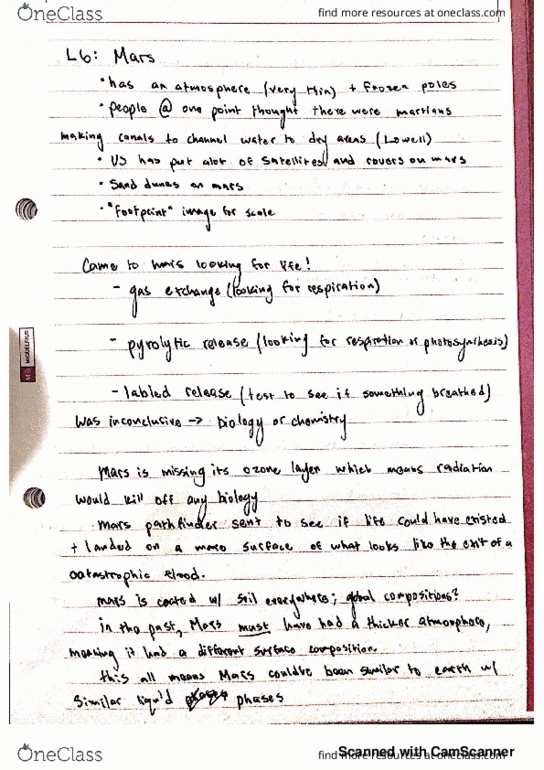 OneClass
find more resources at oneclass.com
L6: Mars
• has an atmosphere (very thin) + frozen poles
• people @ one point thought there were martians
making canals to channel water to dry areas (Lowell)
• US has put alot of satellites and rovers on mars
• Sand dunes on mars
• "Footpoint" image for scale
Came to mars looking for life!
- gas exchange (looking for respiration)
- pyrolytic release (looking for respiration or photosynthesis)
- labled release (test to see if something breathed)
was inconclusive → biology or chemistry
Mars is missing its ozone layer which means radiation
would kill off any biology
mars pathfinder sent to see if life could have existed
+ landed on a surface of what looks like the exit of a
catastrophic flood.
mars is coated w/ soil everywhere; global compositions?
in the past, Mars must have had a thicker atmosphere,
meaning it had a different surface composition.
this all means Mars couldbe been similar to earth w/
similar liquid phases
OneClass
find more resources at oneclass.com
Scanned with CamScanner